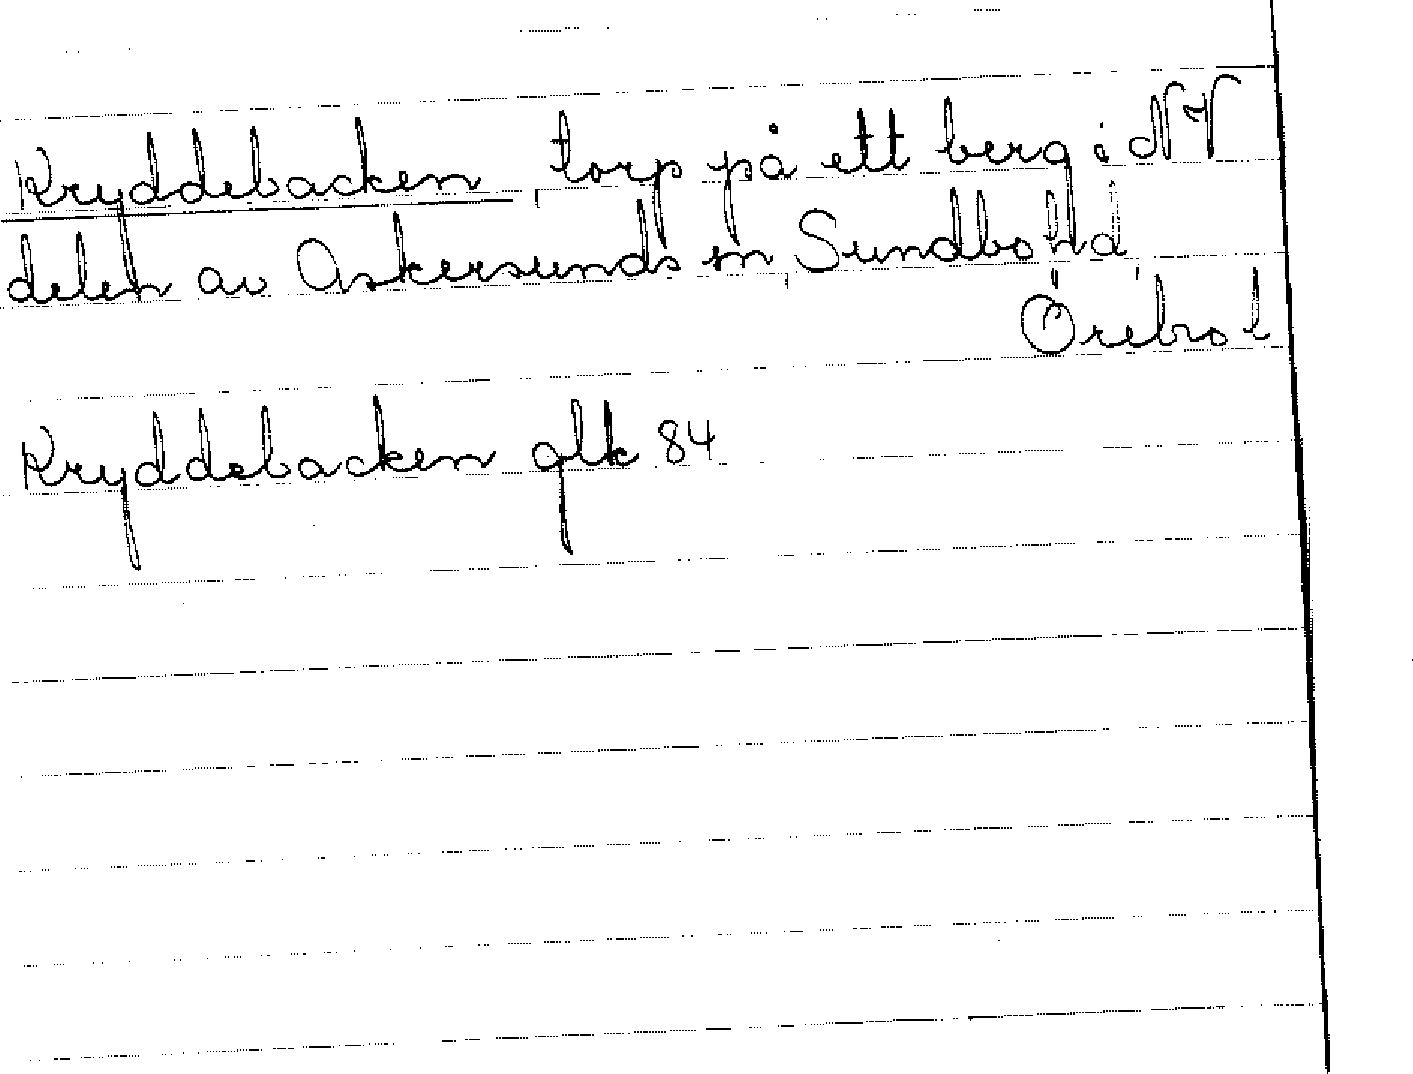 Kryddebacken, torp på ett berg i NV
delen av Askersunds sn, Sundbo hd,
Örebro l
Kryddebacken glk 84